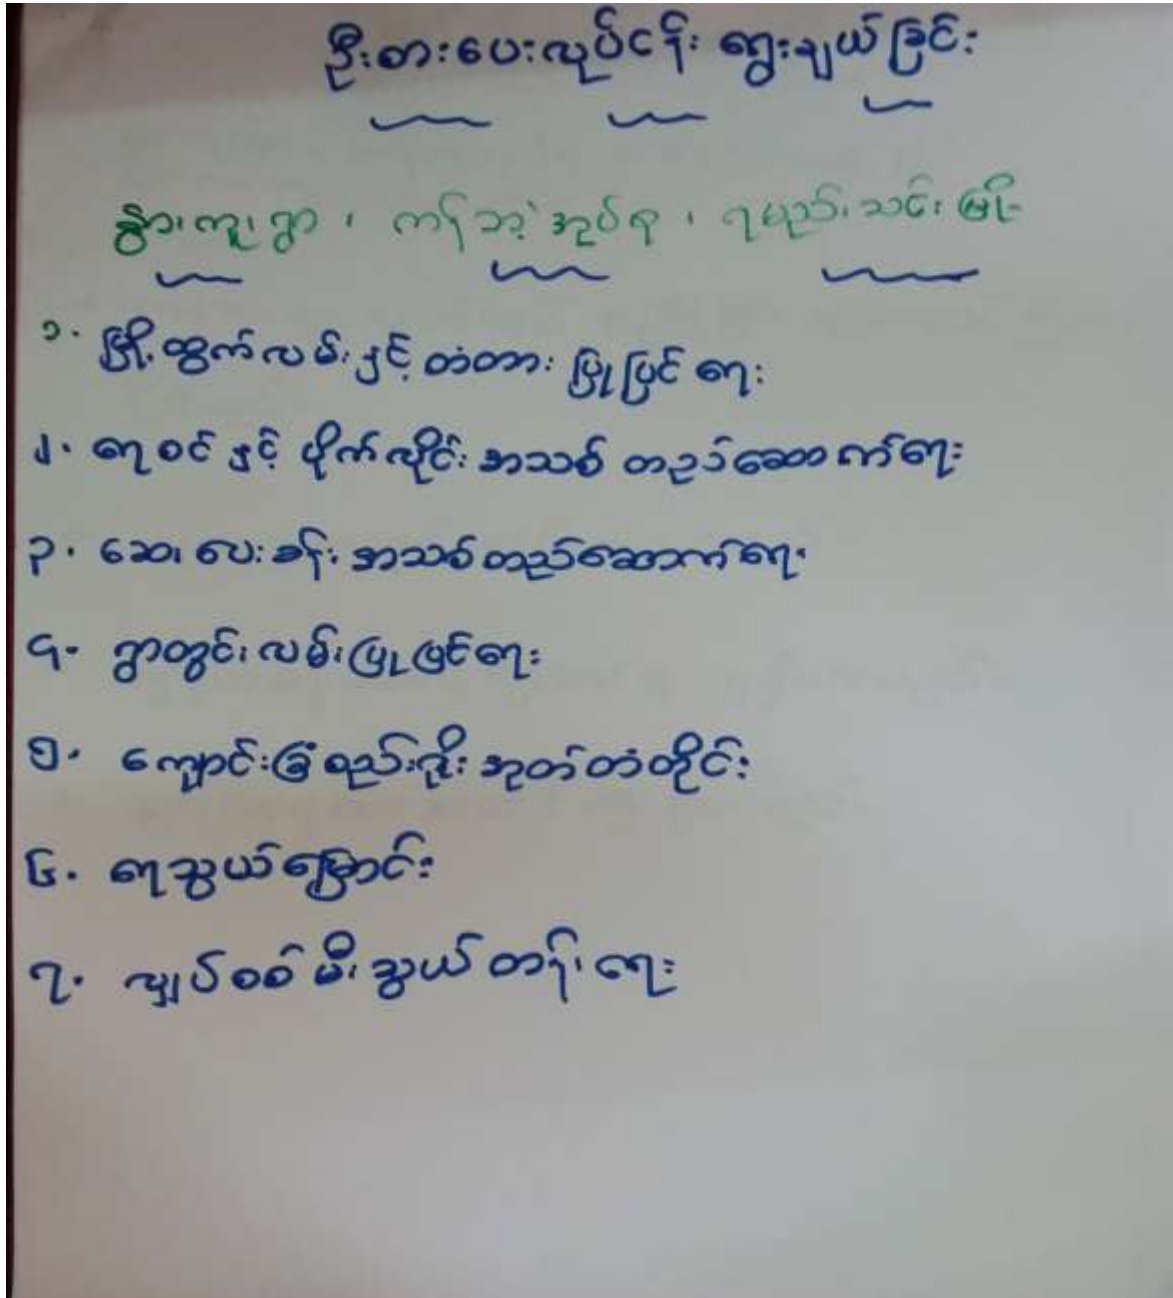 ဦးစားပေးလုပ်ငန်း ရွေးချယ်ခြင်း
နွားကူးရွာ ၊ ကန်ဘဲ့အုပ်စု ၊ ရမည်းသင်းမြို့
၁. မြို့ထွက်လမ်းနှင့် တံတား ပြုပြင်ရေး
၂. ရေစင်နှင့် ပိုက်လိုင်း အသစ် တည်ဆောက်ရေး
၃. ဆေးပေးခန်း အသစ်တည်ဆောက်ရေး
၄. ရွာတွင်းလမ်းပြုပြင်ရေး
၅. ကျောင်းခြံစည်းရိုး အုတ်တံတိုင်း
၆. ရေသွယ်မြောင်း
၇. လျှပ်စစ် မီးသွယ်တန်းရေး